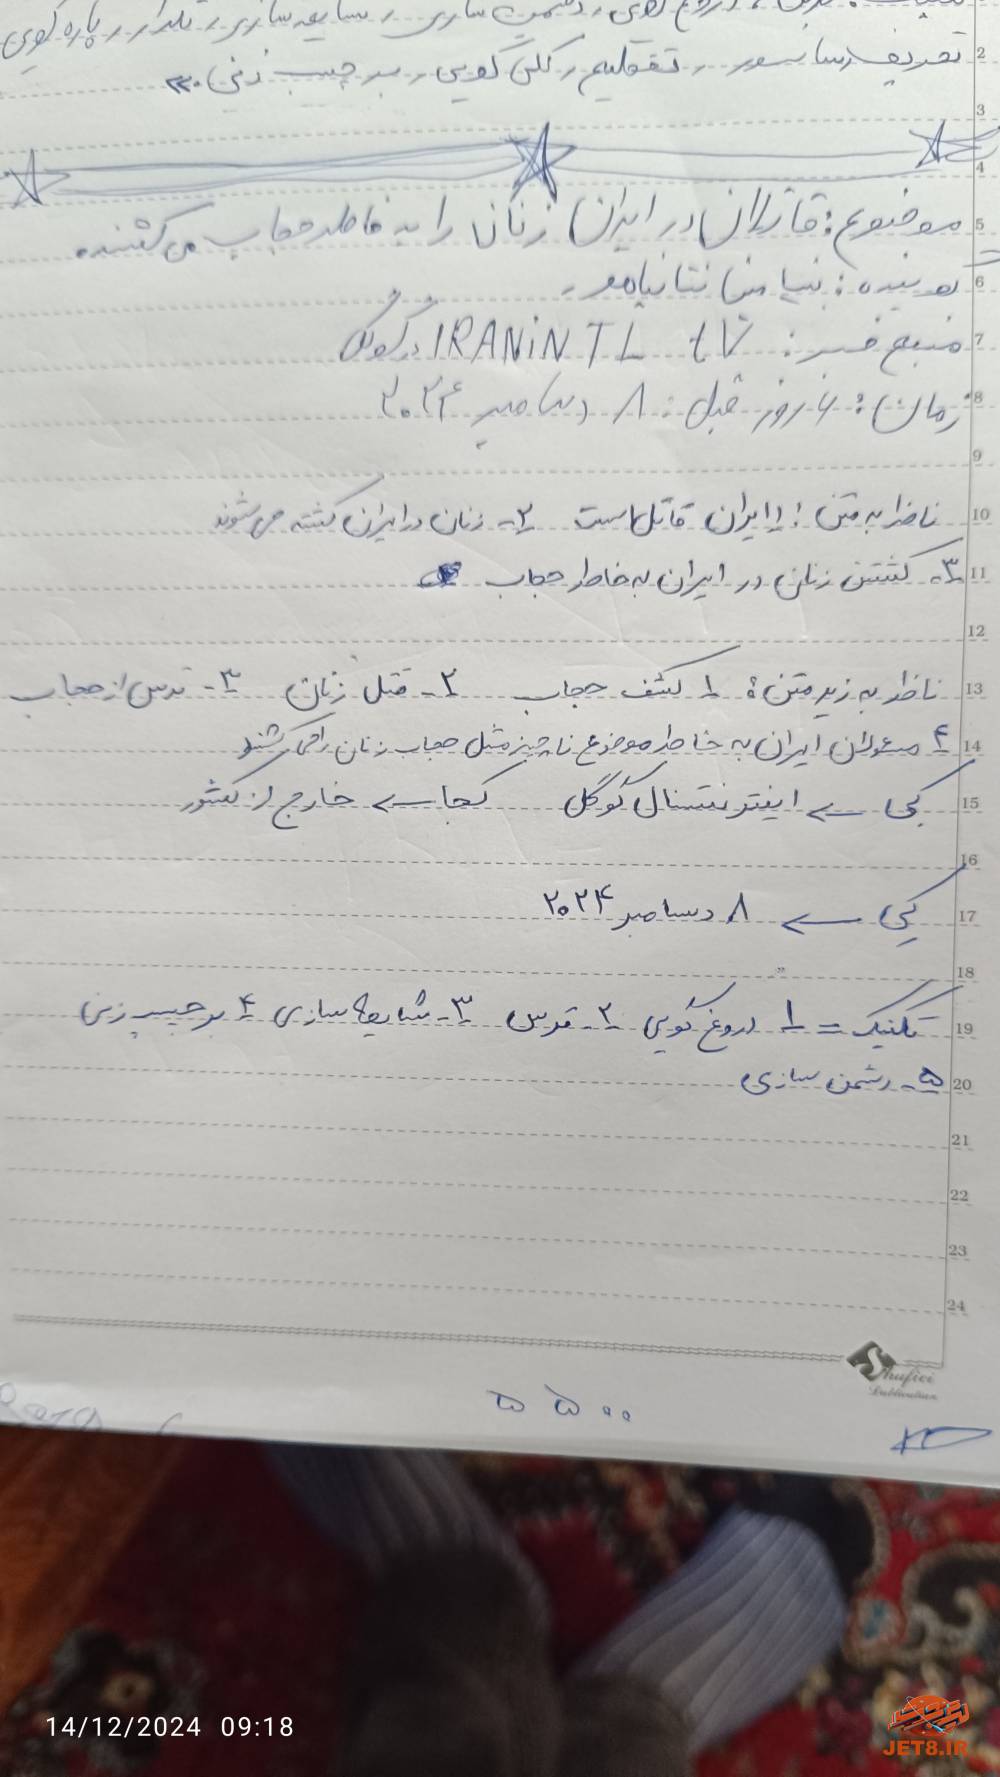 تکنیک: ، دروغ گویی، دشمن سازی، شایعه سازی، تکرار، پاره گویی
2 تحریف، سانسور، تقطیع، کلی گویی، برچسب زنی.
3
4
5 موضوع: قاتلان در ایران زنان را به خاطر حجاب می کشند.
6 نویسنده: بنیامین نتانیاهو.
7 منبع خبر: IRANiNTL tV در گوگل
8 زمان: ۶ روز قبل: ۸ دسامبر ۲۰۲۴
9
10 ناظر به متن: ۱ ایران قاتل است ۲- زنان در ایران کشته می شوند
11 ۳- کشتن زنان در ایران به خاطر حجاب
12
13 ناظر به زیر متن: ۱ کشف حجاب ۲- قتل زنان ۳- ترس از حجاب
14 ۴ مسئولان ایران به خاطر موضوع ناچیز مثل حجاب زنان را می کشند
15 کی ← اینترنتسنال گوگل کجا ← خارج از کشور
16
17 کِی ← ۸ دسامبر ۲۰۲۴
18
19 تکنیک = ۱ دروغ گویی ۲- ترس ۳- شایعه سازی ۴ برچسب زنی
20 ۵- دشمن سازی
21
22
23
24
Shafiei
Publication
۵۵۰۰
14/12/2024 09:18
JET8.IR